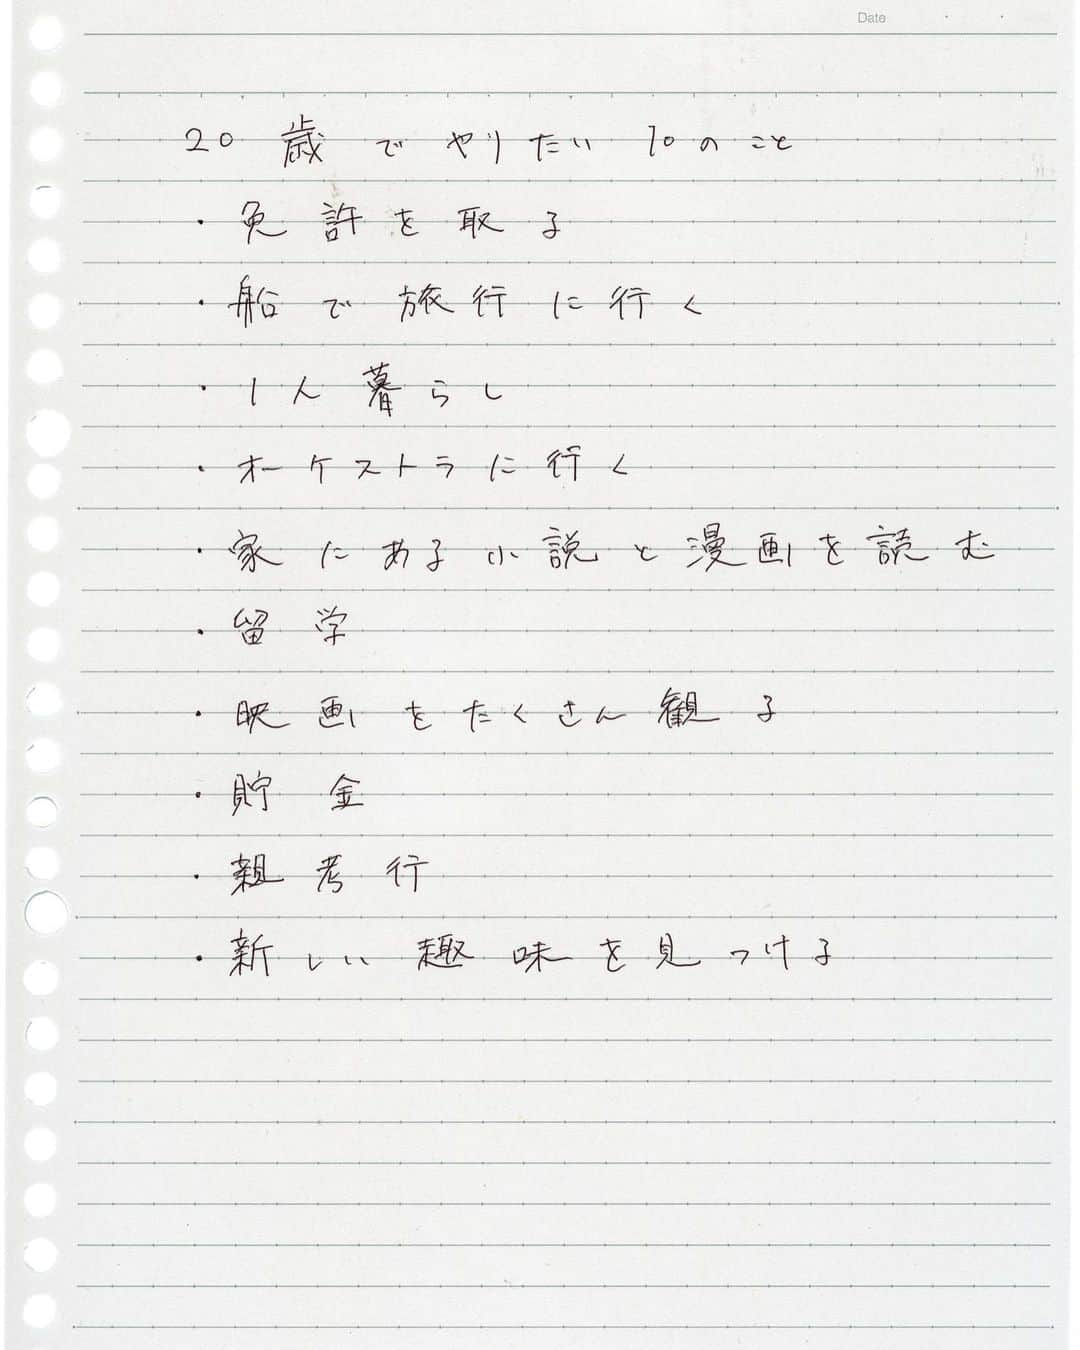 Date
20歳でやりたい10のこと
・免許を取る
・船で旅行に行く
・1人暮らし
・オーケストラに行く
・家にある小説と漫画を読む
・留学
・映画をたくさん観る
・貯金
・親考行
・新しい趣味を見つける